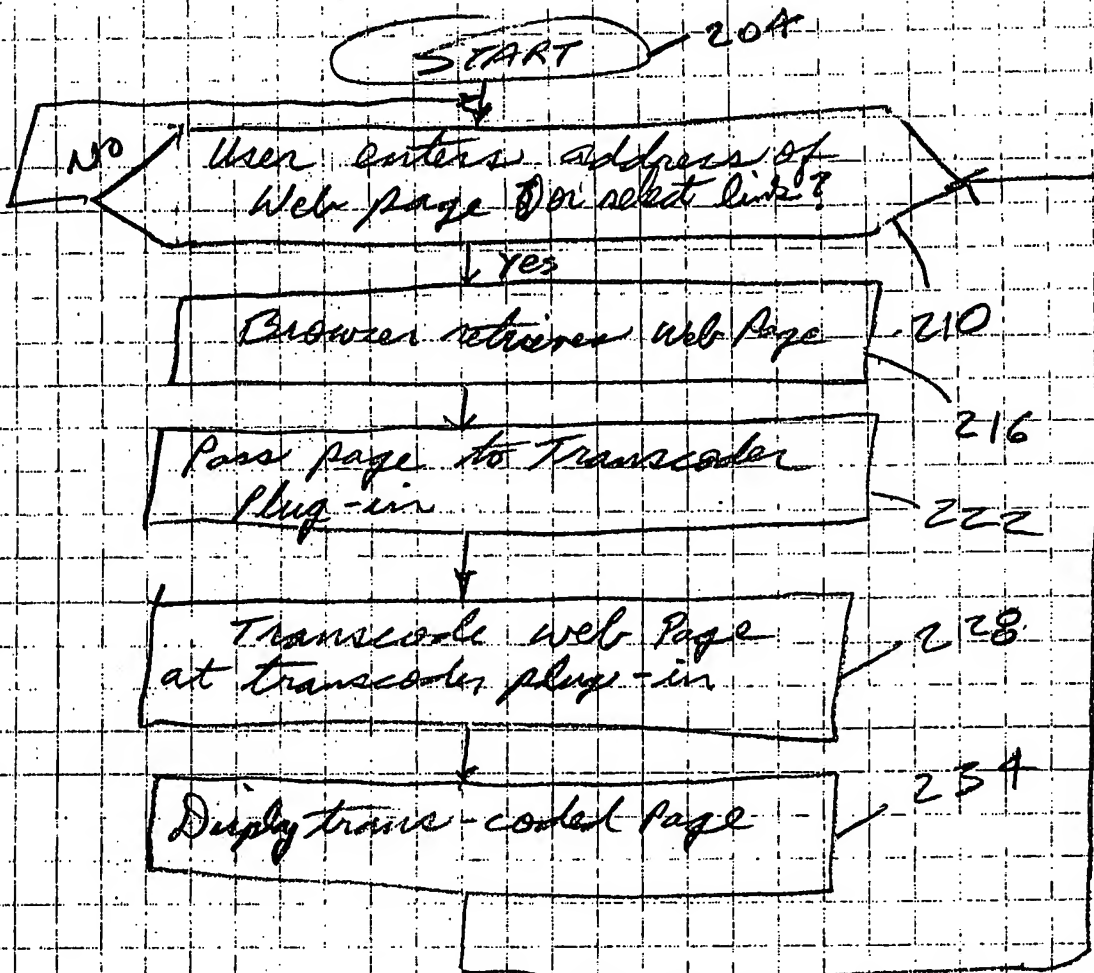 START 204
NO
User enters address of
Web page or select link?
Yes
210
Browser retrieves Web Page
216
Pass page to Transcoder
Plug-in
222
Transcode web Page
at transcoder plug-in
228
Disply trans-coded Page
234